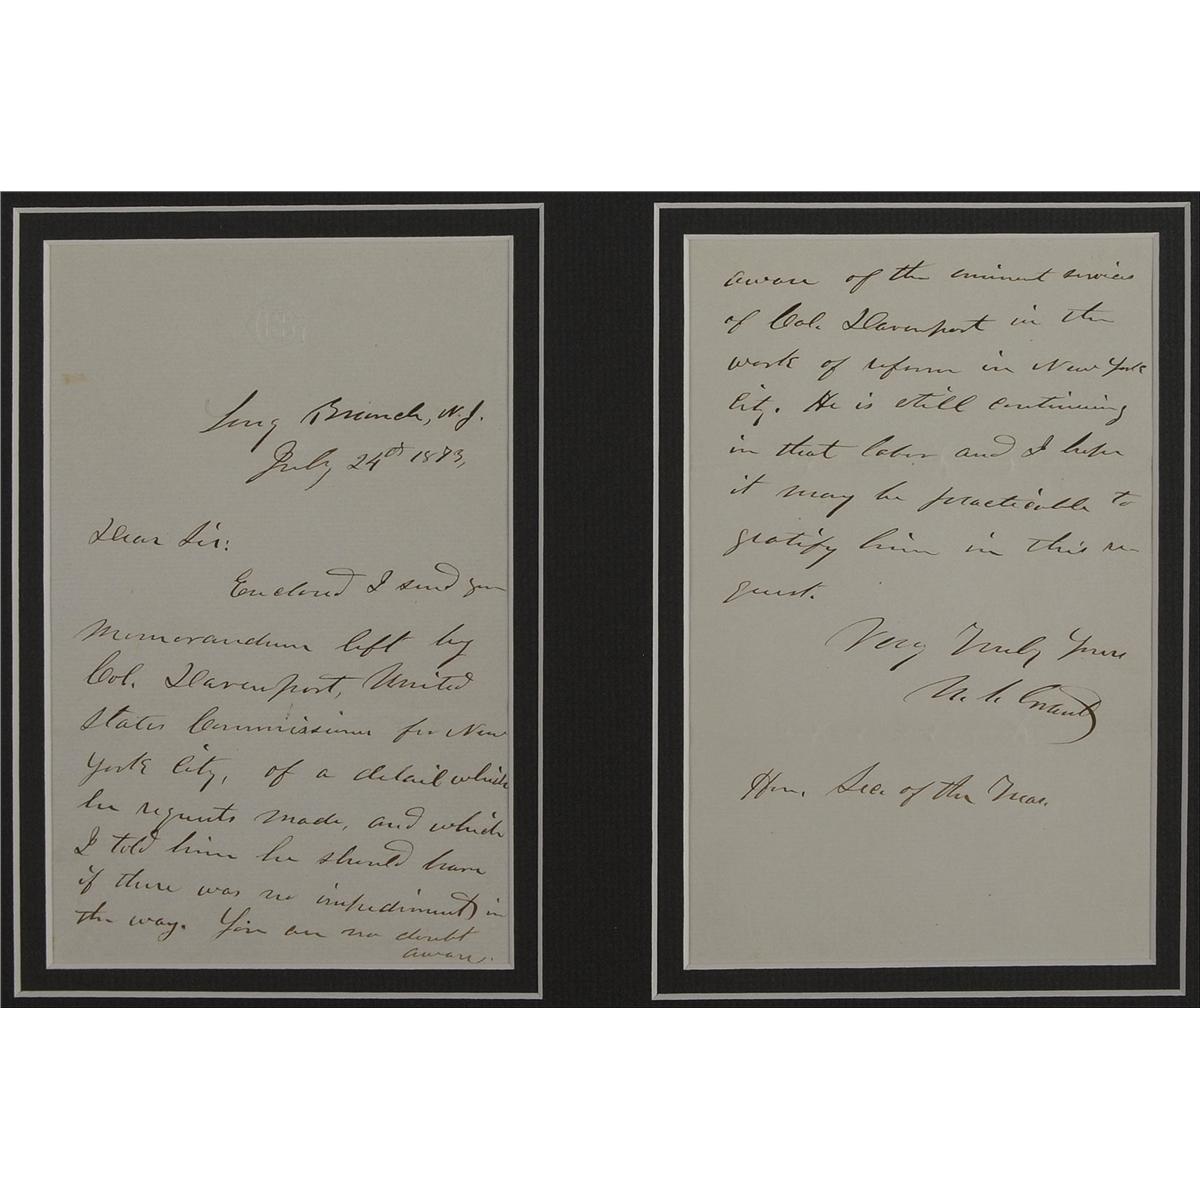 Long Branch, N.J.
July 24th 1873,
Dear Sir:
Enclosed I send you
Memorandum left by
Col. Davenport, United
States Commissioner for New
York City, of a detail which
he requests made, and which
I told him he should have
if there was no impediment in
the way. You are no doubt
aware.
aware of the eminent services
of Col. Davenport in the
work of reform in New York
City. He is still continuing
in that labor and I hope
it may be practicable to
gratify him in this re-
quest.
Very Truly Yours
U. S. Grant
Hon. Sec. of the Treas.